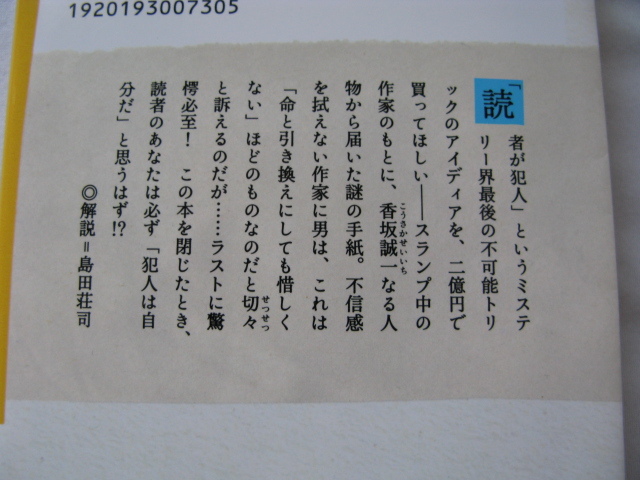 1920193007305
「読者が犯人」というミステ
リー界最後の不可能トリ
ックのアイディアを、二億円で
買ってほしい――スランプ中の
作家のもとに、香坂誠一なる人
こうさかせいいち
物から届いた謎の手紙。不信感
を拭えない作家に男は、これは
「命と引き換えにしても惜しく
ない」ほどのものなのだと切々
せつせつ
と訴えるのだが……ラストに驚
愕必至！ この本を閉じたとき、
読者のあなたは必ず「犯人は自
分だ」と思うはず!?
◎解説＝島田荘司